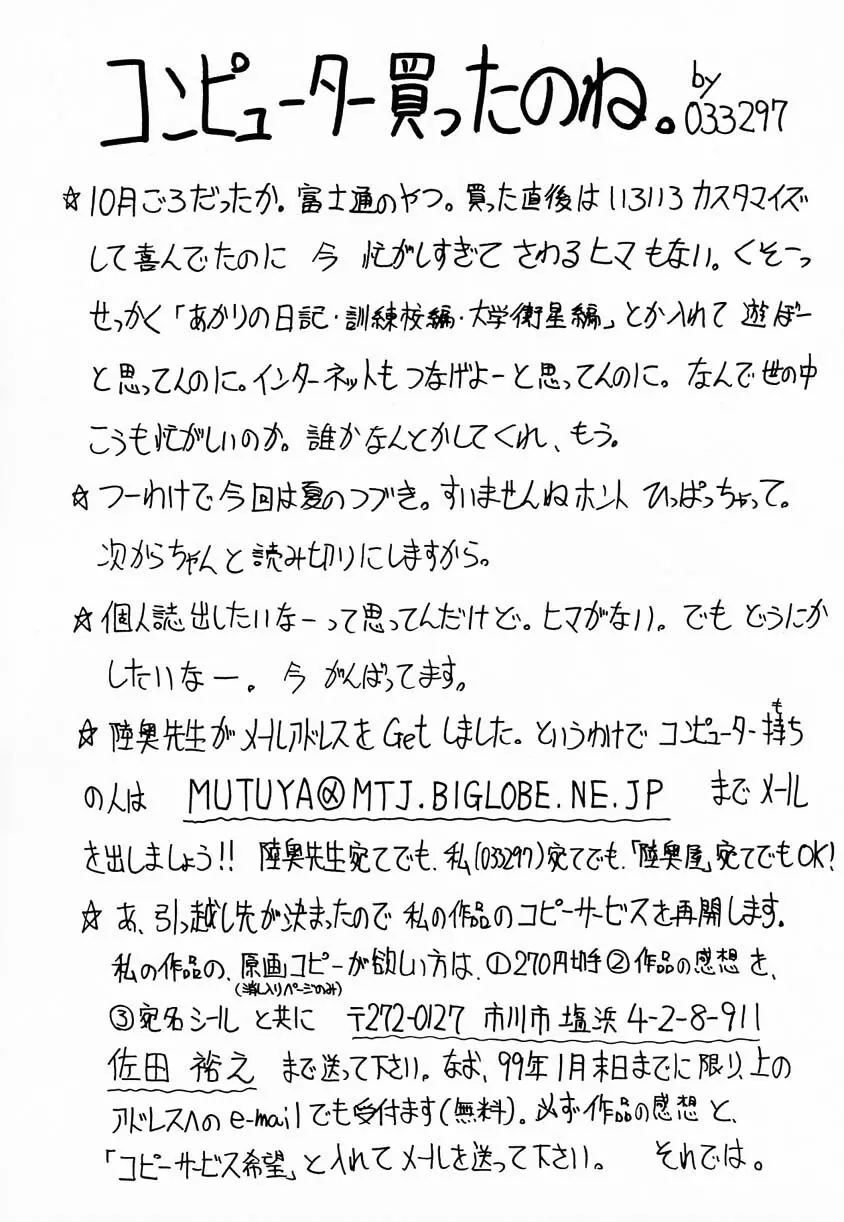 コンピューター買ったのね。by 033297
☆10月ごろだったか。富士通のやつ。買った直後はいろいろカスタマイズ
して喜んでたのに 今 忙がしすぎて さわるヒマもない。くそーっ
せっかく「あかりの日記・訓練校編・大学衛星編」とか入れて 遊ぼー
と思ってんのに。インターネットもつなげよーと思ってんのに。なんで世の中
こうも忙がしいのか。誰かなんとかしてくれ、もう。
☆つーわけで今回は夏のつづき。すいませんねホント ひっぱっちゃって。
次からちゃんと読み切りにしますから。
☆個人誌出したいなーって思ってんだけど。ヒマがない。でも どうにか
したいなー。今 がんばってます。
☆陸奥先生がメールアドレスをGetしました。というわけで コンピューター持ち
も
の人は MUTUYA@MTJ.BIGLOBE.NE.JP までメール
を出しましょう!! 陸奥先生宛てでも、私(03297)宛てでも、「陸奥屋」宛てでもOK!
☆あ、引っ越し先が決まったので 私の作品のコピーサービスを再開します。
私の作品の、原画コピーが欲しい方は、①270円切手②作品の感想を、
(消し入りページのみ)
③宛名シール と共に 〒272-0127 市川市塩浜4-2-8-911
佐田 裕之 まで送って下さい。なお、99年1月末日までに限り、上の
アドレスへのe-mailでも受付ます(無料)。必ず作品の感想と、
「コピーサービス希望」と入れてメールを送って下さい。 それでは。